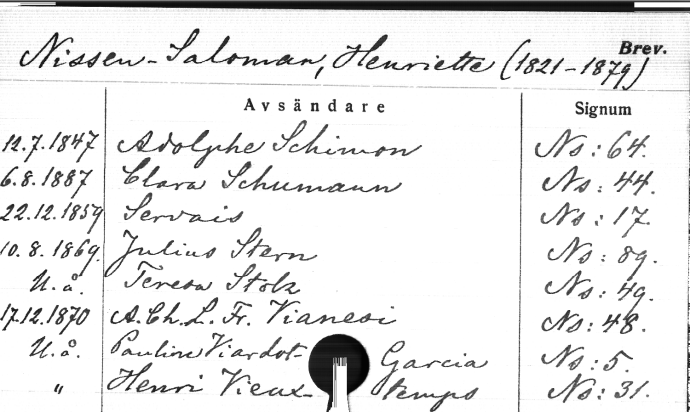 Brev.
Nissen-Saloman, Henriette (1821-1879)
Avsändare Signum
12.7.1847 Adolphe Schimon Ns: 64.
6.8.1887 Clara Schumann Ns: 44.
22.12.1859 Servais Ns: 17.
10.8.1869. Julius Stern Ns: 89.
U.å. Teresa Stolz Ns: 49.
17.12.1870 A.Ch.L.Fr. Vianesi Ns: 48.
U.å. Pauline Viardot-Garcia Ns: 5.
" Henri Vieux-temps Ns: 31.